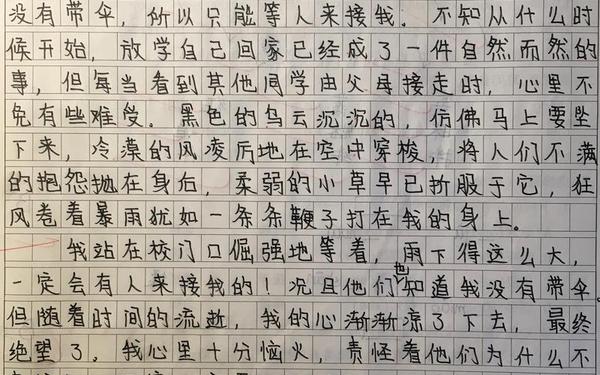 没有带伞，所以只能等人来接我。不知从什么时
候开始，放学自己回家已经成了一件自然而然的
事，但每当看到其他同学由父母接走时，心里不
免有些难受。黑色的乌云沉沉的，仿佛马上要坠
下来，冷漠的风凌厉地在空中穿梭，将人们不满
的抱怨抛在身后，柔弱的小草早已折服于它，狂
风卷着暴雨犹如一条条鞭子打在我的身上。
我站在校门口倔强地等着，雨下得这么大，
一定会有人来接我的！况且他们也知道我没有带伞。
但随着时间的流逝，我的心渐渐凉了下去，最终
绝望了。我心里十分恼火，责怪着他们为什么不